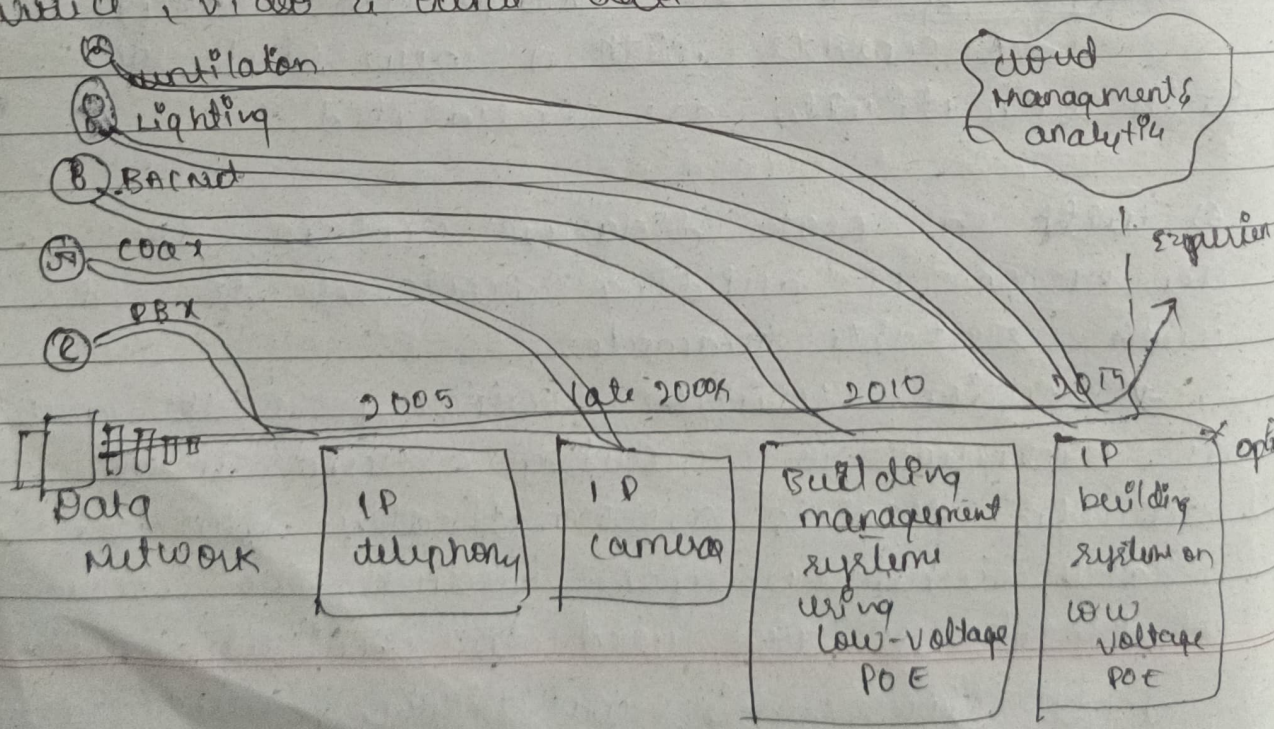 ventilaton
Lighting
B BACNet
coax
PBX
cloud
managment &
analytic
2005
late 2000s
2010
2015
Data
Network
IP
telephony
IP
camera
Building
management
system
using
low-voltage
POE
IP
building
system on
low
voltage
POE